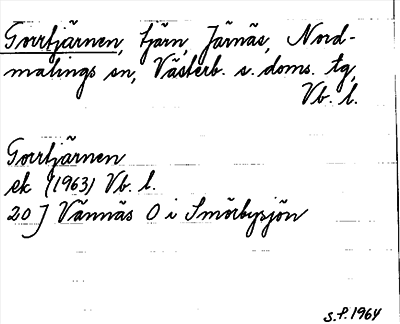 Torrtjärnen, tjärn, Järnäs, Nord-
malings sn, Västerb. s. doms. tg,
Vb. l.
Torrtjärnen
ek (1963) Vb. l.
20 J Vännäs O i Smörbysjön
s.f. 1964